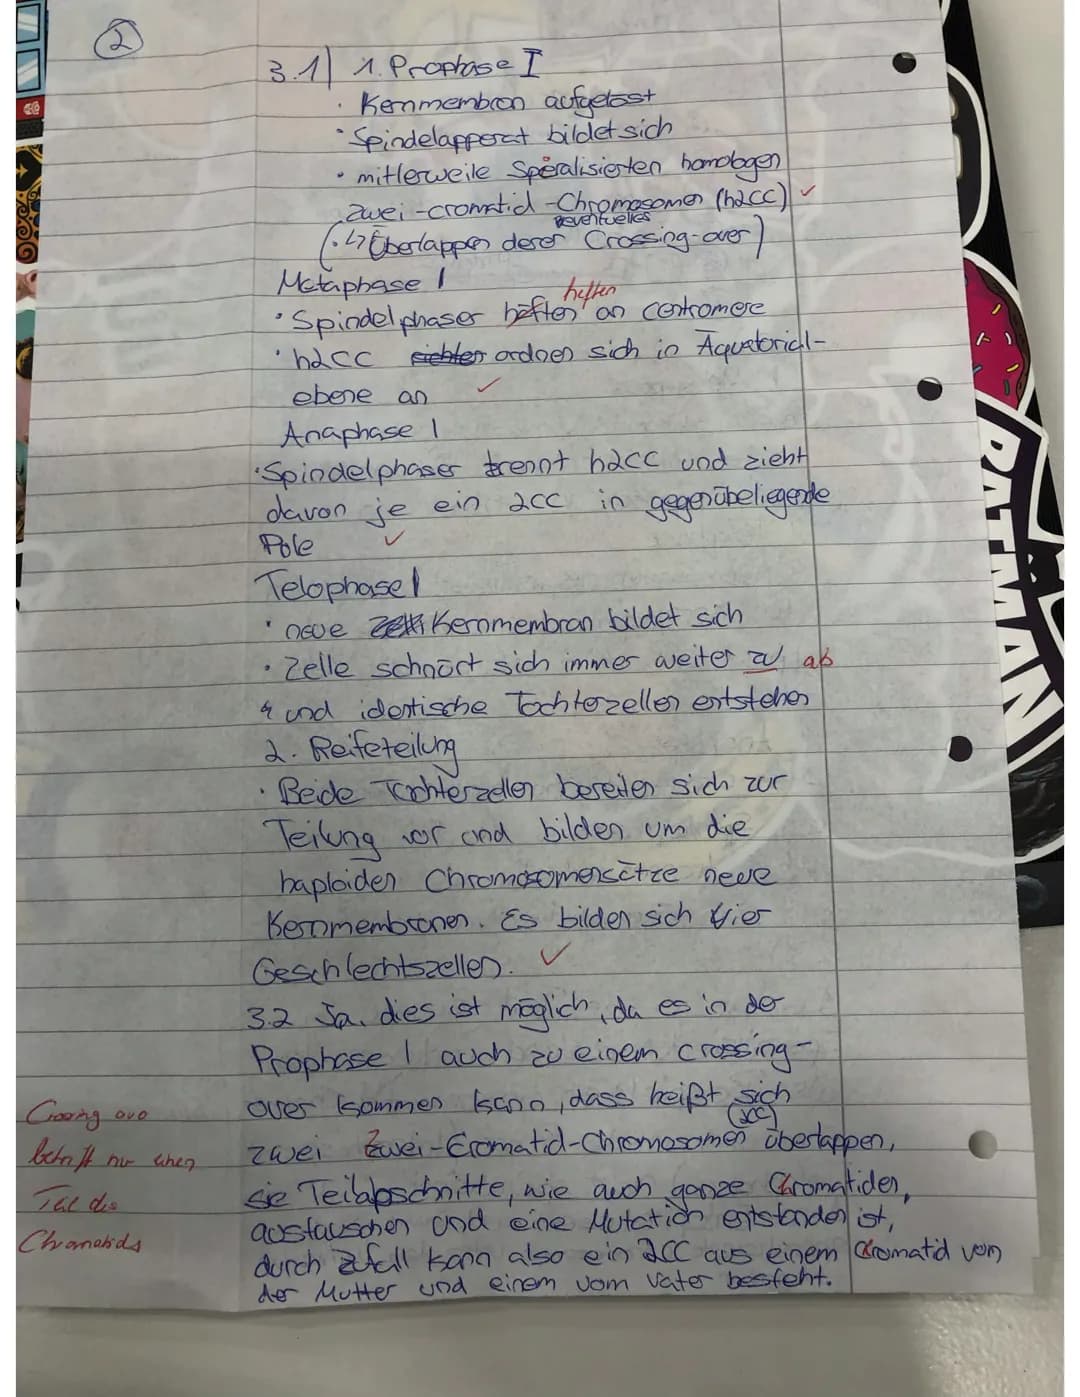 2
3.1) 1. Prophase I
· Kernmembran aufgelösst
· Spindelapperat bildet sich
· mitlerweile Speralisierten homologen
zwei-cromatid-Chromosomen (h2CC) ✓
eventuelles
(· ↳ Überlappen derer Crossing-over)
Metaphase I
heften
· Spindelphaser häften an centromere
· h2CC ordnen sich in Äquatorial-
ebene an ✓
Anaphase I
· Spindelphaser trennt h2CC und zieht
davon je ein 2CC in gegenübeliegende
Pole ✓
Telophase I
· neue Kernmembran bildet sich
· Zelle schnürt sich immer weiter zu ab
und identische Tochterzellen entstehen
2. Reifeteilung
· Beide Tochterzellen bereiten sich zur
Teilung vor und bilden um die
haploiden Chromosomensätze neue
Kernmembranen. Es bilden sich Vier
Geschlechtszellen. ✓
3.2 Ja, dies ist möglich, da es in der
Prophase I auch zu einem crossing-
over kommen kann, dass heißt sich
(2CC)
zwei Zwei-Cromatid-Chromosomen überlappen,
sie Teilabschnitte, wie auch ganze Chromatiden,
austauschen und eine Mutation entstanden ist,
durch Zufall kann also ein 2CC aus einem Cromatid vom
der Mutter und einem vom Vater besteht.
Crossing ove
betrifft nur einen
Teil des
Chromatids
BATMAN